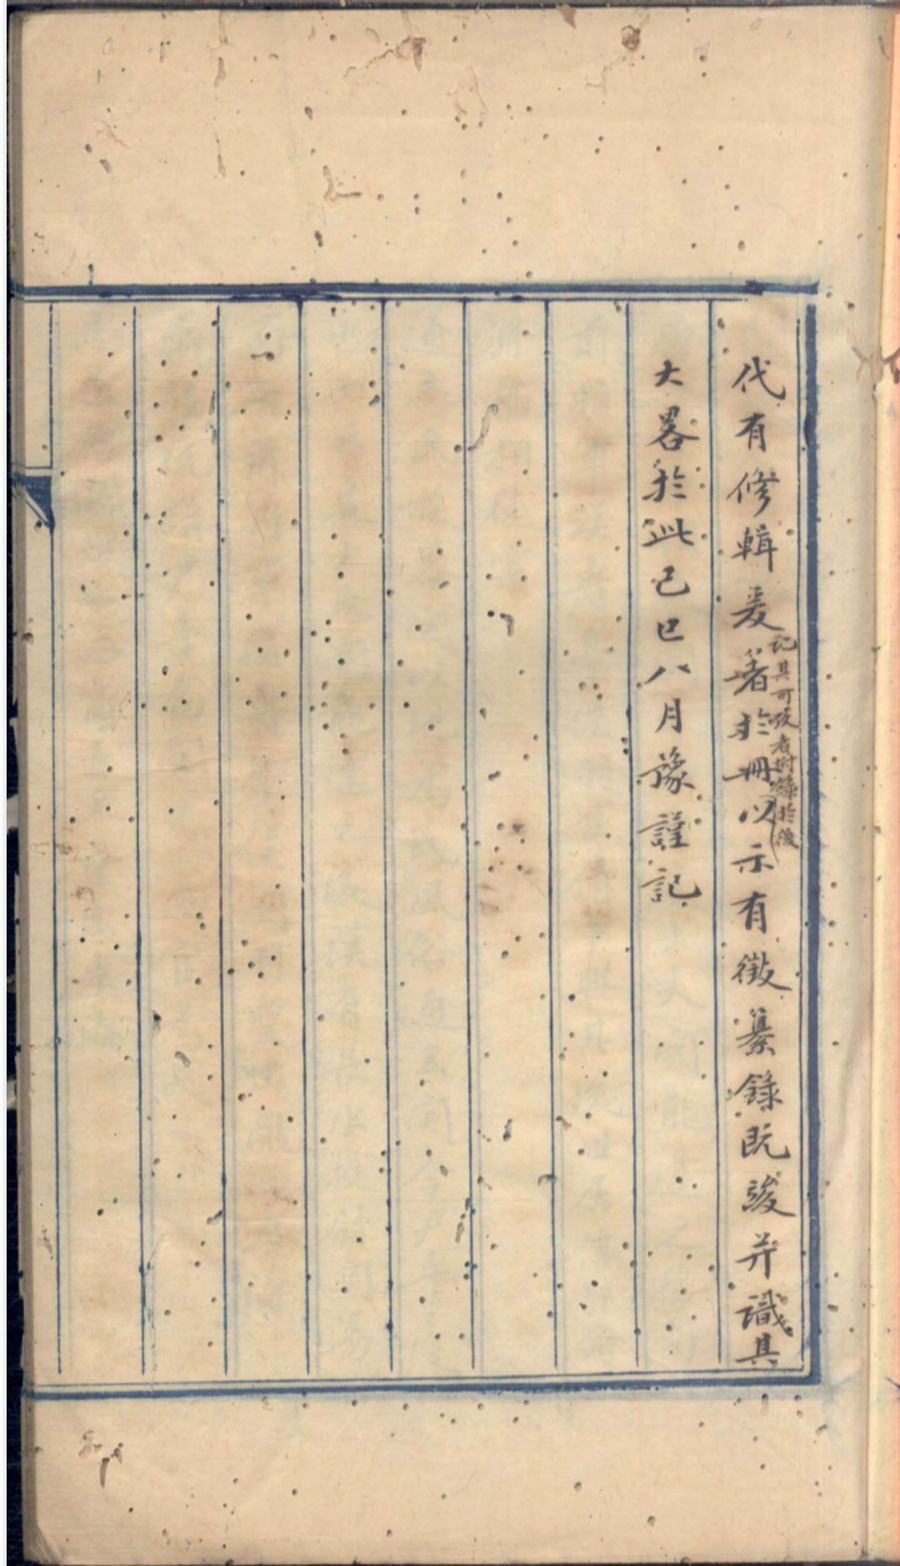 代有修輯爰著於冊以示有徵纂錄既竣并識其
記其可攷者附錄於後
大畧於此己巳八月豫謹記